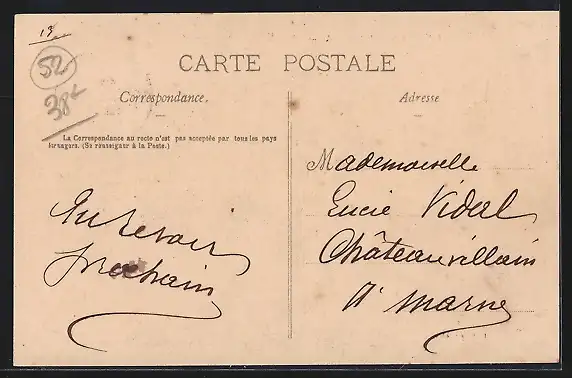 13
52
38
CARTE POSTALE
Correspondance.
Adresse
La Correspondance au recto n'est pas acceptée par tous les pays
étrangers. (Se renseigner à la Poste.)
Mademoiselle
Lucie Vidal
Châteauvillain
Hte Marne
Au revoir
prochain